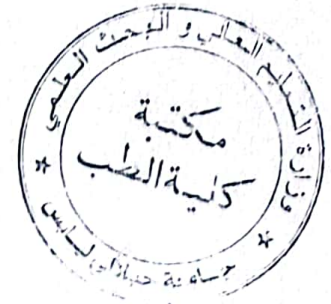 وزارة التعليم العالي و البحث العلمي
مكتبة
كلية الطب
جامعة جيلالي ليابس